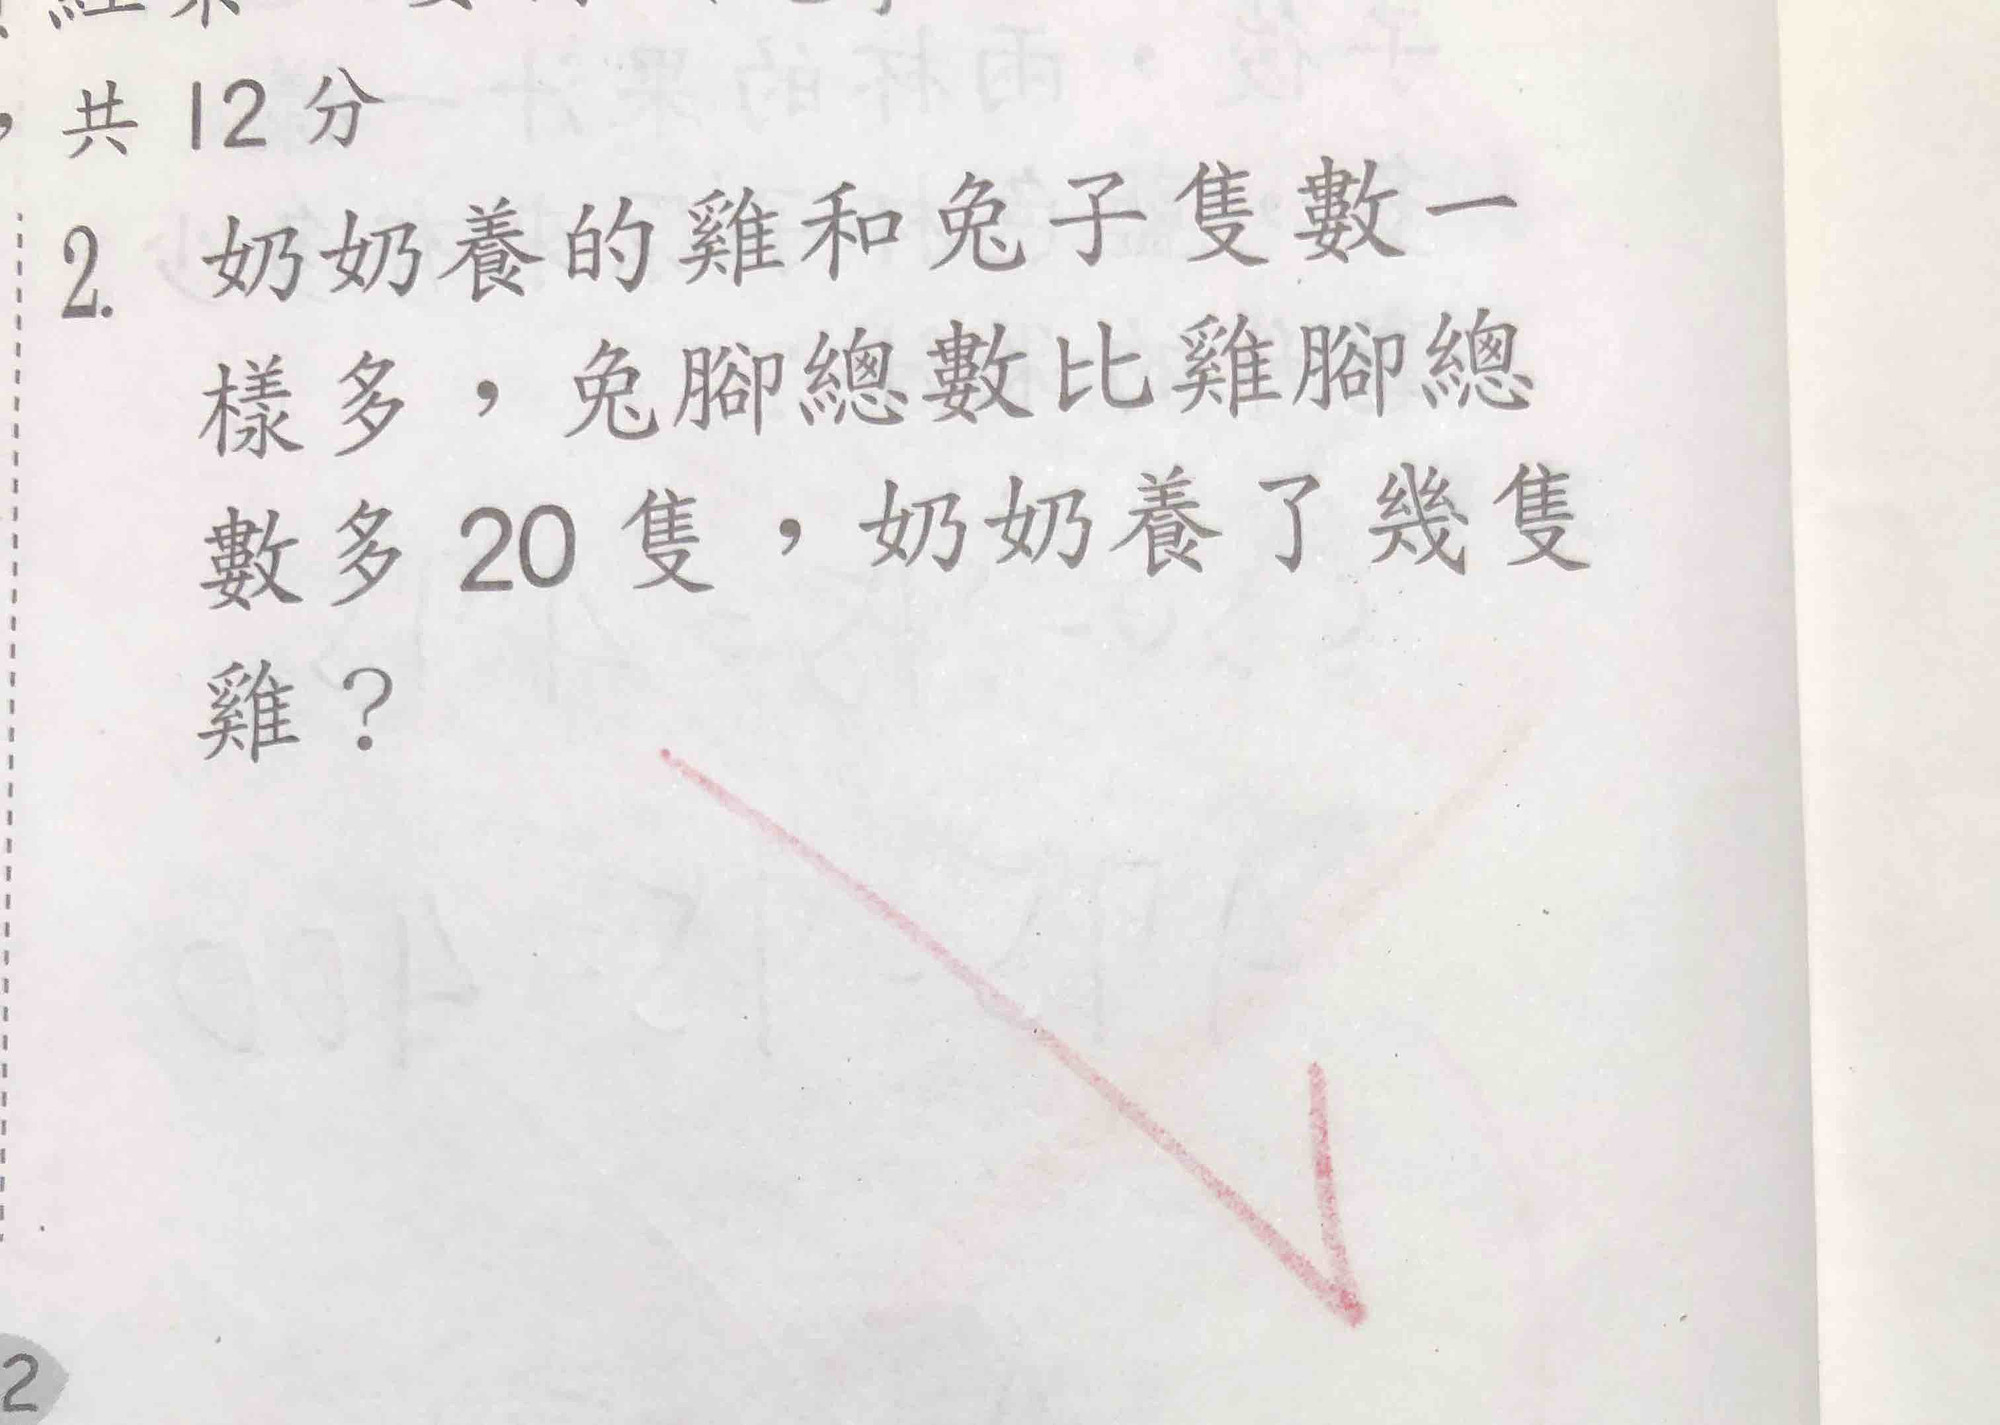 ，共12分
2. 奶奶養的雞和兔子隻數一
樣多，兔腳總數比雞腳總
數多20隻，奶奶養了幾隻
雞？
2